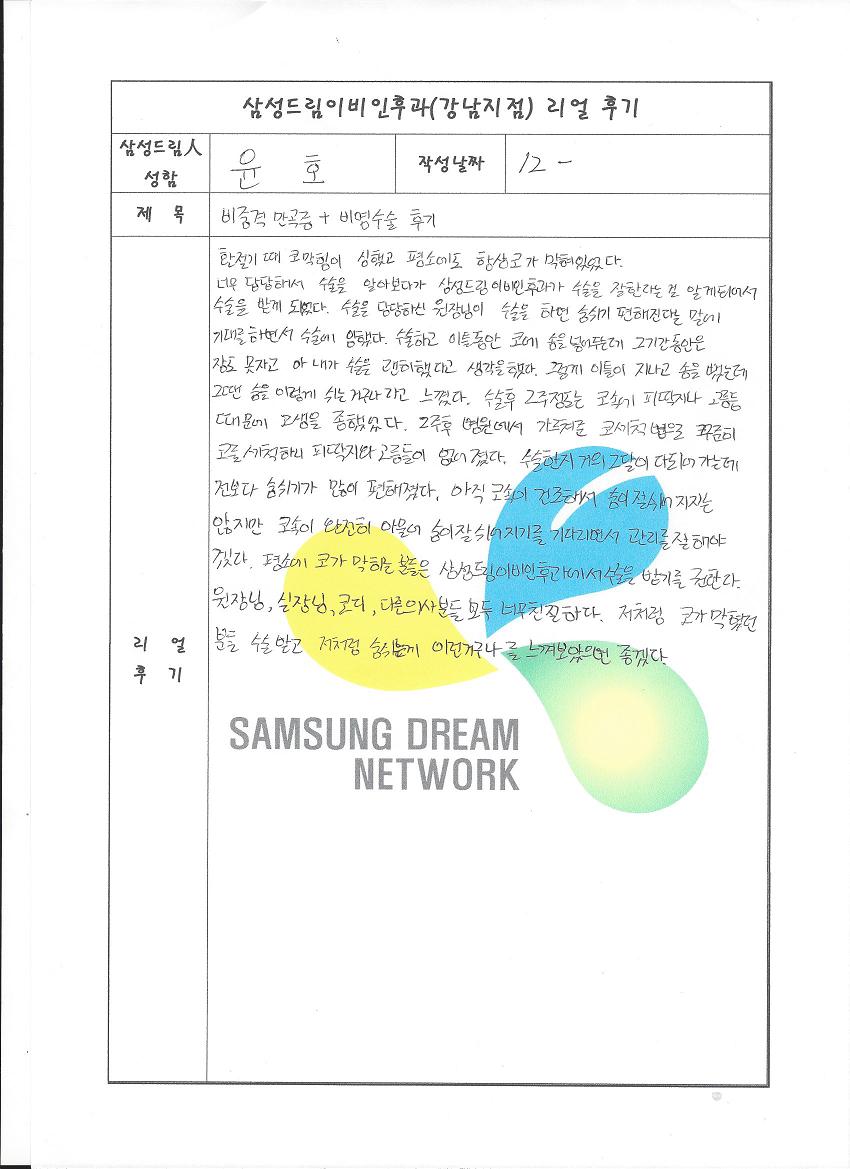 삼성드림이비인후과(강남지점) 리얼 후기
삼성드림人
성함
윤 호
작성날짜
12 -
제 목
비중격 만곡증 + 비염수술 후기
환절기 때 코막힘이 심했고 평소에도 항상 코가 막혀있었다.
너무 답답해서 수술을 알아보다가 삼성드림이비인후과가 수술을 잘한다는 걸 알게되어서
수술을 받게 되었다. 수술을 담당하신 원장님이 수술을 하면 숨쉬기 편해진다는 말에
기대를 하면서 수술에 임했다. 수술하고 이틀동안 코에 솜을 넣어두는데 그기간동안은
잠도 못자고 아 내가 수술을 괜히했다고 생각을 했다. 그렇게 이틀이 지나고 솜을 뺐는데
그땐 숨을 이렇게 쉬는거구나 라고 느꼈다. 수술후 2주정도는 코속에 피딱지나 고름등
때문에 고생을 좀했었다. 2주후 병원에서 가르쳐준 코세척 법으로 꾸준히
코를 세척하니 피딱지와 고름들이 없어졌다. 수술한지 거의 2달이 다되어 가는데
전보다 숨쉬기가 많이 편해졌다. 아직 코속이 건조해서 숨이 잘쉬어 지지는
않지만 코속이 완전히 아물어 숨이 잘 쉬어지기를 기다리면서 관리를 잘 해야
겠다. 평소에 코가 막히는 분들은 삼성드림이비인후과에서 수술을 받기를 권한다.
원장님, 실장님, 코디, 다른의사분들 모두 너무친절하다. 저처럼 코가 막혔던
분들 수술 받고 저처럼 숨쉬는게 이런거구나 를 느껴보았으면 좋겠다.
리 얼
후 기
SAMSUNG DREAM
NETWORK